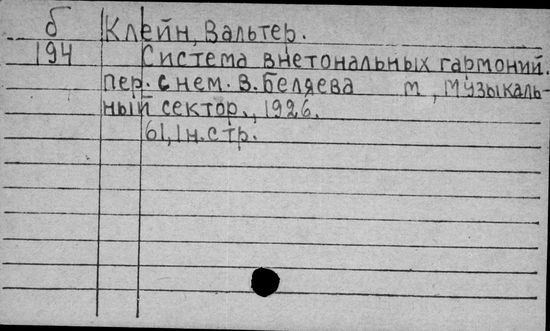 б Клейн, Вальтер.
194 Система внетональных гармоний.
пер. с нем. В. Беляева м, Музыкаль-
ный сектор., 1926.
61, 1 н. стр.